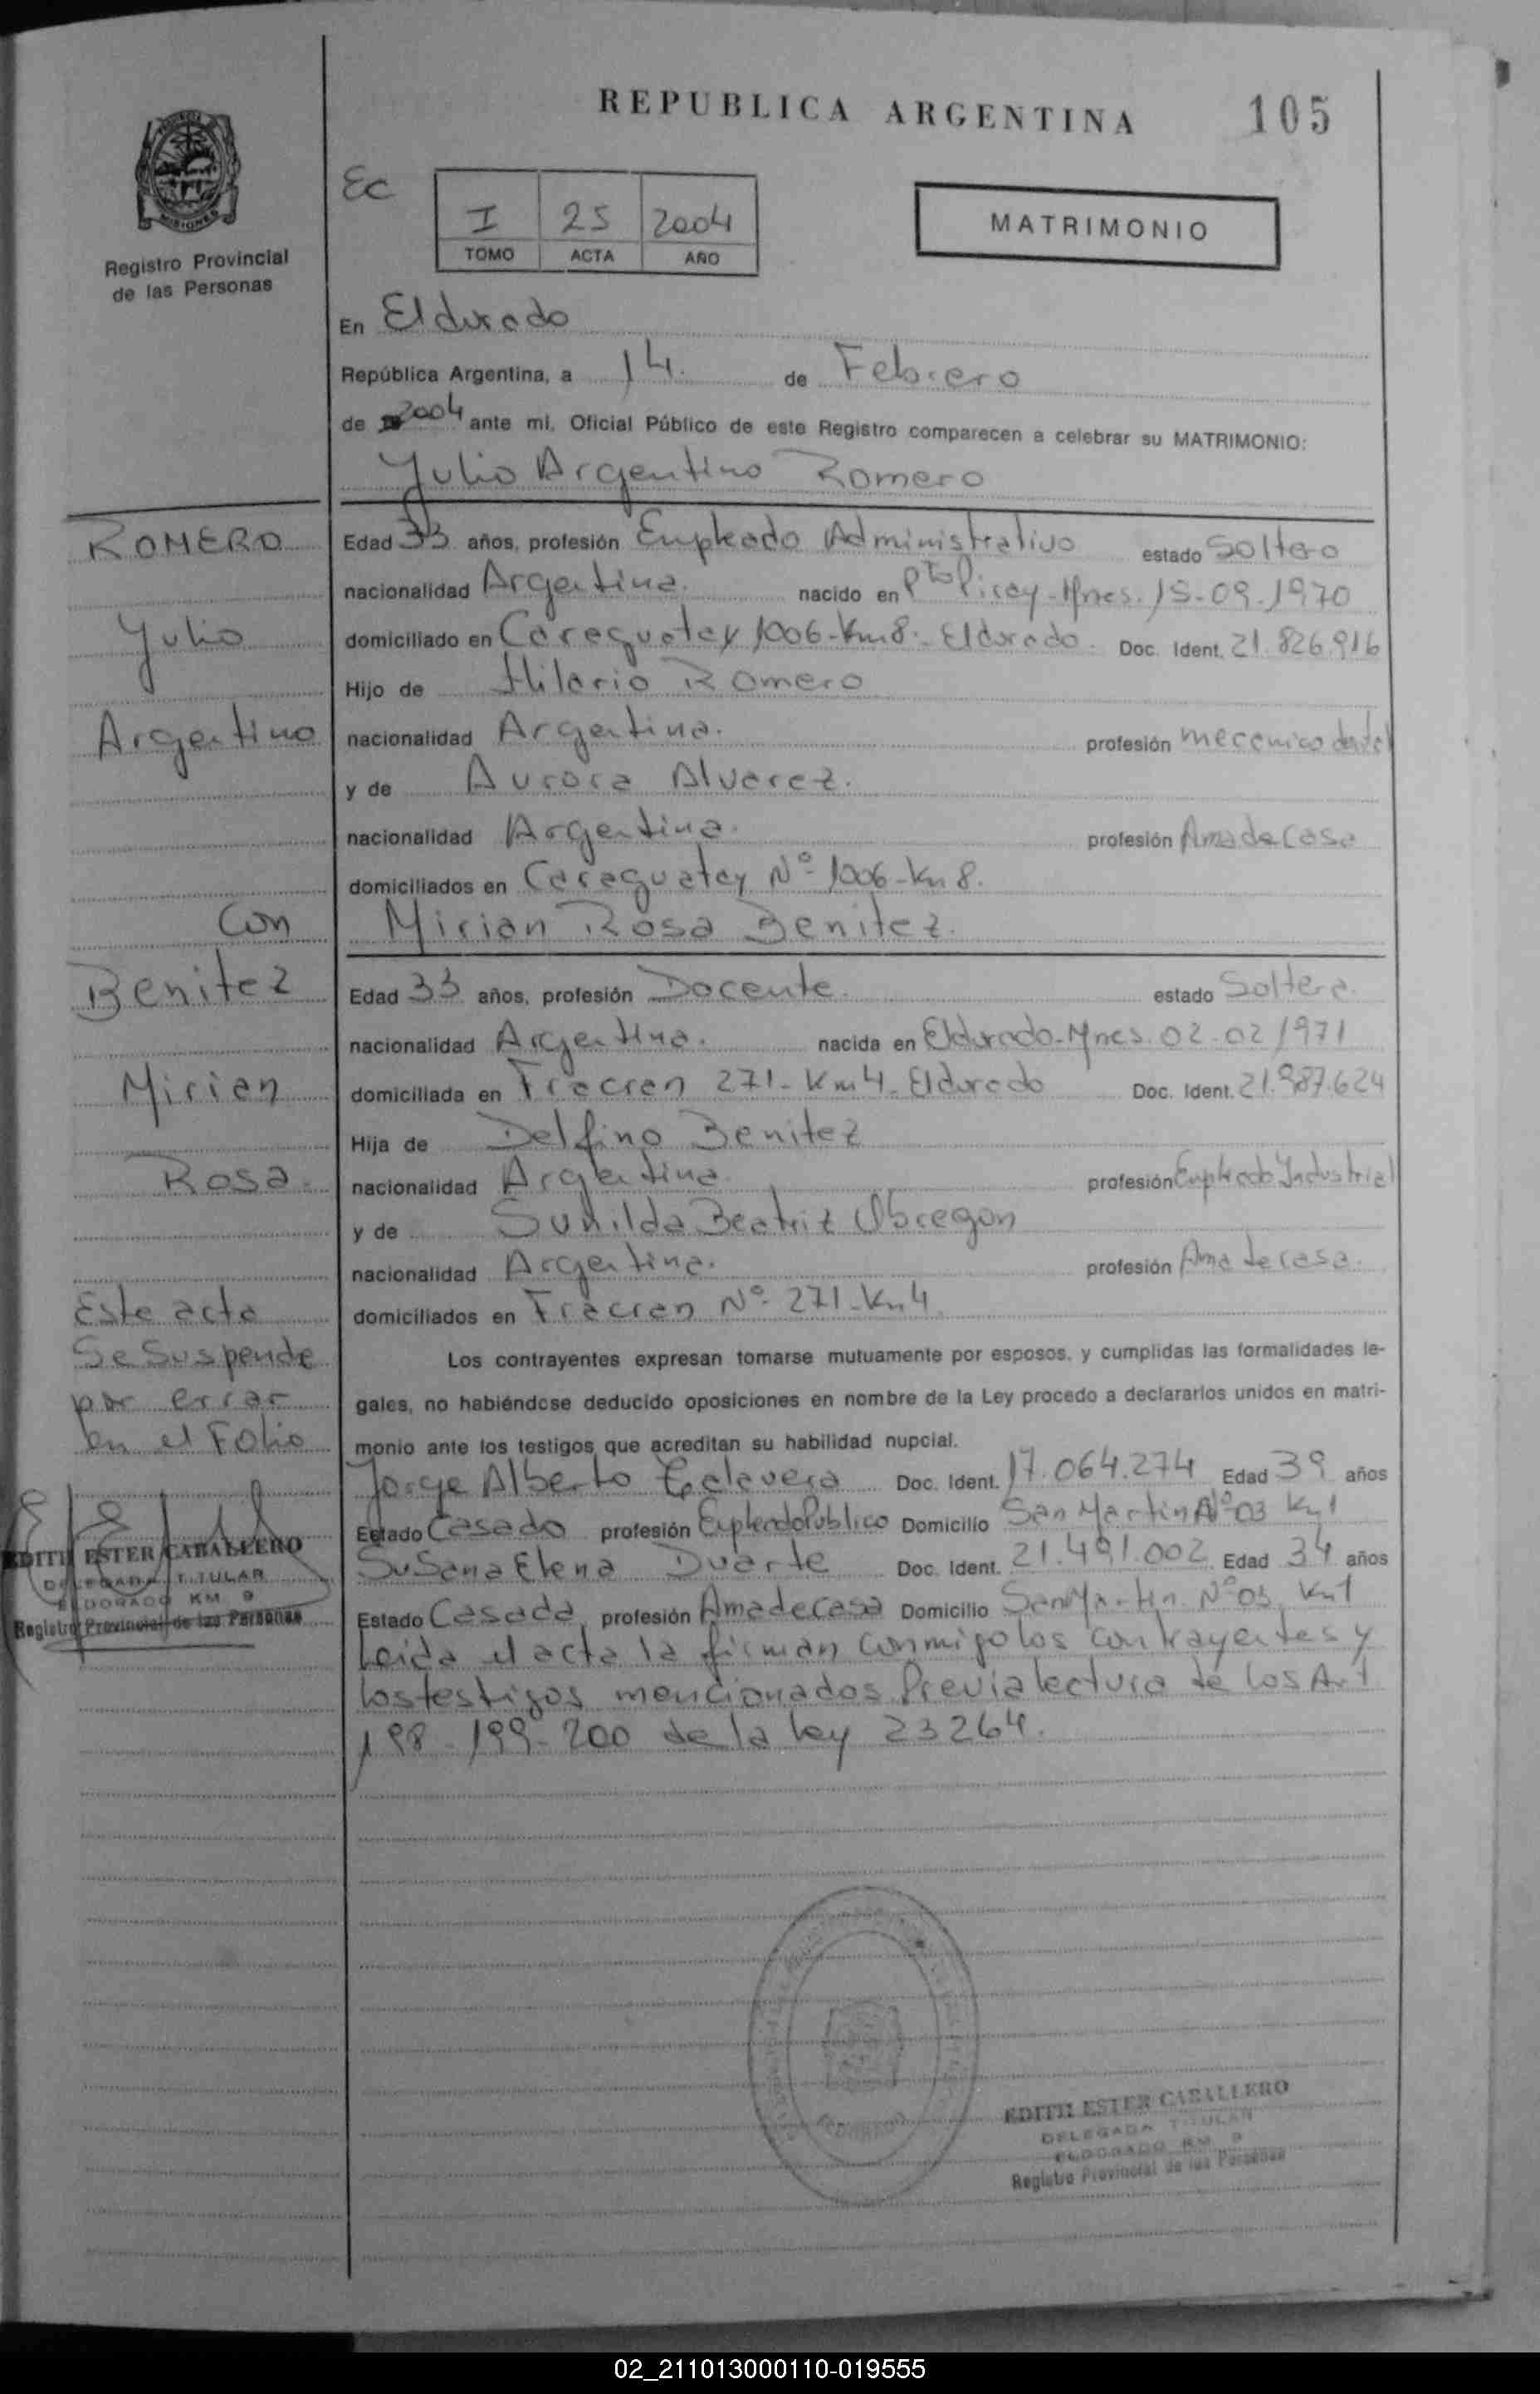 REPUBLICA ARGENTINA
105
PROVINCIA
MISIONES
Registro Provincial
de las Personas
Ec
I 25 2004
TOMO ACTA AÑO
MATRIMONIO
En Eldorado
República Argentina, a 14. de Febrero
de 2004 ante mi, Oficial Público de este Registro comparecen a celebrar su MATRIMONIO:
Yulio Argentino Romero
ROMERO
Yulio
Argentino
Con
Benitez
Mirian
Rosa.
Este acta
Se Suspende
por error
en el Folio
EDITH ESTER CABALLERO
DELEGADA TITULAR
ELDORADO KM 9
Registro Provincial de las Personas
Edad 33 años, profesión Empleado Administrativo estado Soltero
nacionalidad Argentina. nacido en Pto Piray-Mnes. 15-09-1970
domiciliado en Caraguatay 1006-Km8-Eldorado. Doc. Ident. 21.826.916
Hijo de Hilario Romero
nacionalidad Argentina. profesión mecanico dental
y de Aurora Alvarez.
nacionalidad Argentina. profesión Ama de Casa
domiciliados en Caraguatay Nº 1006-Km 8.
Mirian Rosa Benitez.
Edad 33 años, profesión Docente. estado Soltera.
nacionalidad Argentina. nacida en Eldorado-Mnes. 02-02-1971
domiciliada en Fracran 271-Km4-Eldorado Doc. Ident. 21.987.624
Hija de Delfino Benitez
nacionalidad Argentina. profesión Empleado Industrial
y de Sunilda Beatriz Obregon
nacionalidad Argentina. profesión Ama de casa.
domiciliados en Fracran Nº 271-Km4.
Los contrayentes expresan tomarse mutuamente por esposos, y cumplidas las formalidades le-
gales, no habiéndose deducido oposiciones en nombre de la Ley procedo a declararlos unidos en matri-
monio ante los testigos que acreditan su habilidad nupcial.
Jorge Alberto Doc. Ident. 17.064.274 Edad 39 años
Estado Casado profesión Empleado Publico Domicilio San Martin Nº 03 Km1
Susana Elena Duarte Doc. Ident. 21.491.002 Edad 34 años
Estado Casada profesión Ama de casa Domicilio San Martin Nº 03 Km1
Leida el acta la firman conmigo los contrayentes y
los testigos mencionados Previa lectura de los Art
198-199-200 de la ley 23264.
EDITH ESTER CABALLERO
DELEGADA TITULAR
ELDORADO KM 9
Registro Provincial de las Personas
02_211013000110-019555